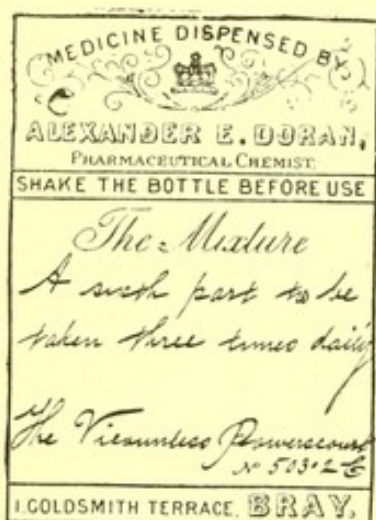 MEDICINE DISPENSED BY
ALEXANDER E. DORAN,
PHARMACEUTICAL CHEMIST.
SHAKE THE BOTTLE BEFORE USE
The Mixture
A sixth part to be
taken three times daily
The Viscountess Powerscourt
No 5030
1. GOLDSMITH TERRACE, BRAY.